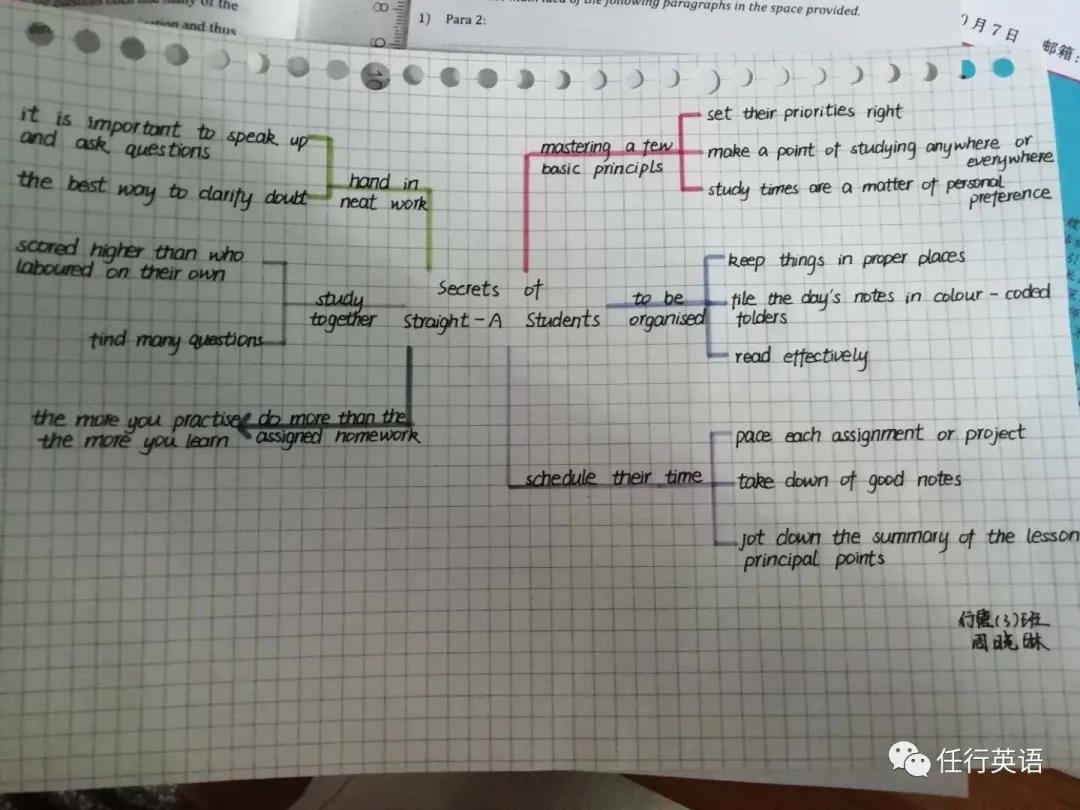 tion and thus
the main idea of the following paragraphs in the space provided.
1) Para 2:
月7日
邮箱:
8
9
10
it is important to speak up
and ask questions
the best way to clarify doubt
hand in
neat work
scored higher than who
laboured on their own
find many questions
study
together
the more you practise
the more you learn
do more than the
assigned homework
Secrets of
Straight-A Students
mastering a few
basic principls
set their priorities right
make a point of studying anywhere or
everywhere
study times are a matter of personal
preference
to be
organised
keep things in proper places
file the day's notes in colour-coded
folders
read effectively
schedule their time
pace each assignment or project
take down of good notes
jot down the summary of the lesson
principal points
(3)班
周晓琳
任行英语